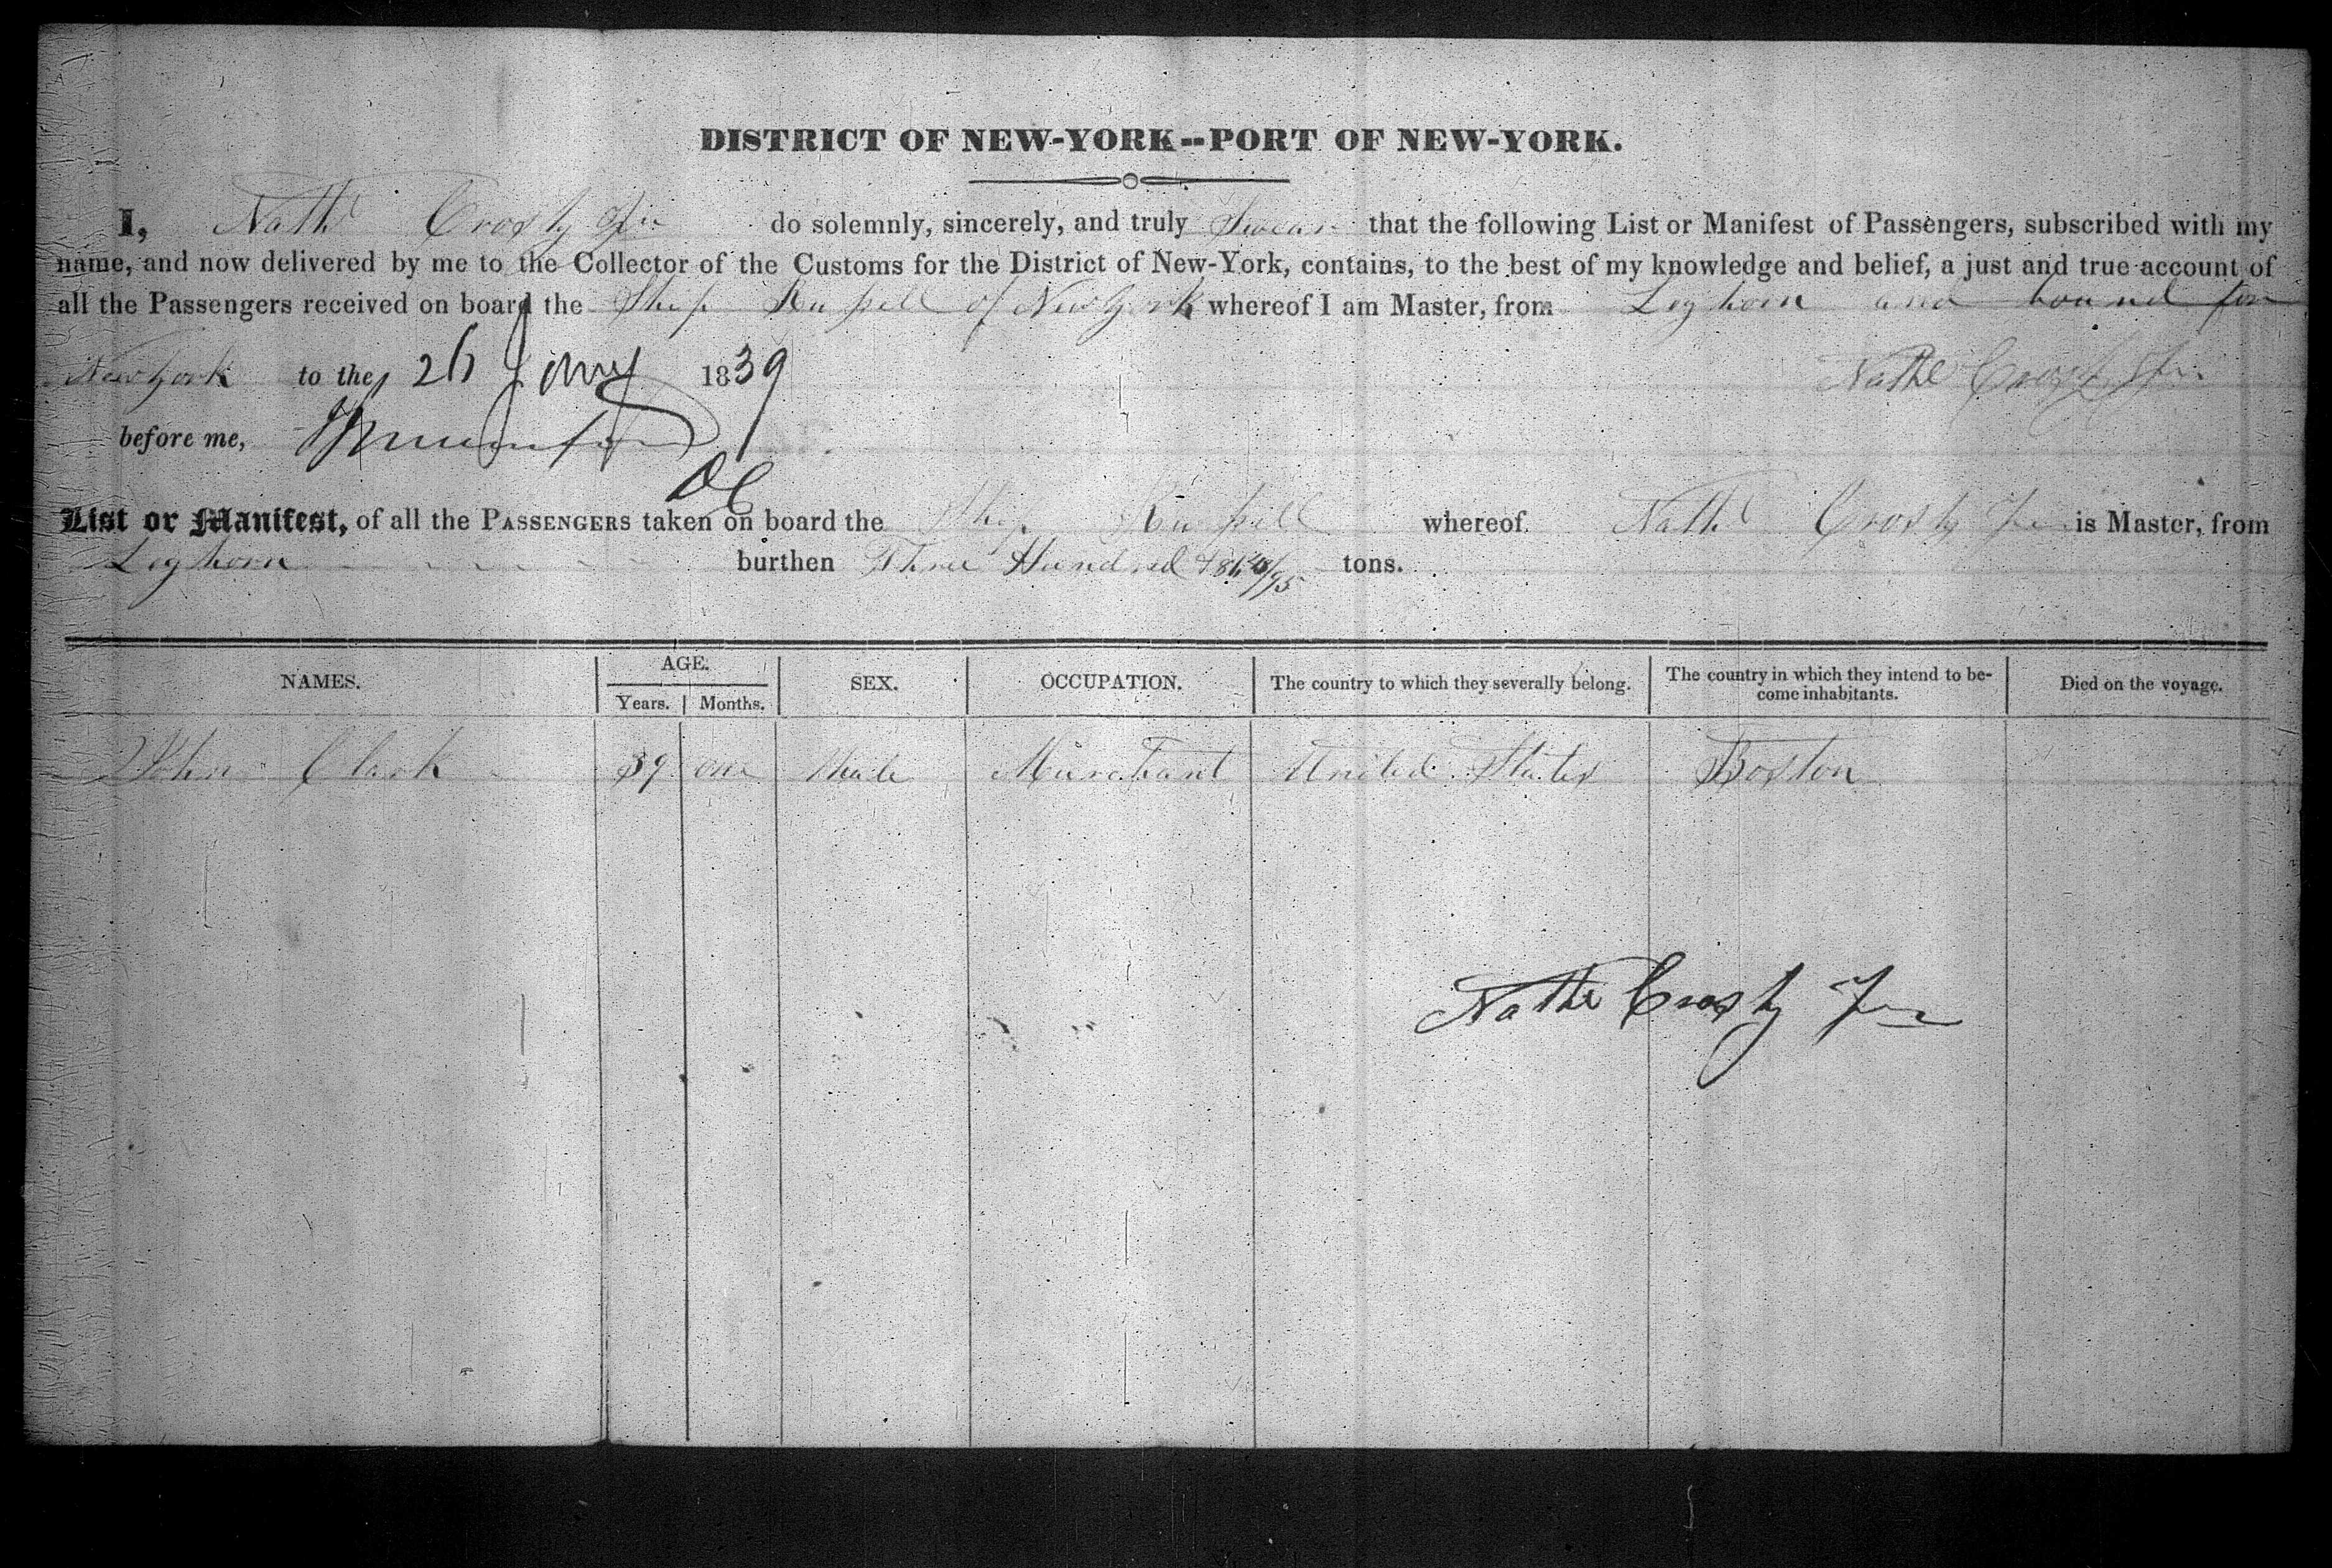 DISTRICT OF NEW-YORK--PORT OF NEW-YORK.
I, Nathl Crosby Jr do solemnly, sincerely, and truly Swear that the following List or Manifest of Passengers, subscribed with my
name, and now delivered by me to the Collector of the Customs for the District of New-York, contains, to the best of my knowledge and belief, a just and true account of
all the Passengers received on board the Ship Russell of New York whereof I am Master, from Leghorn and bound for
New York to the 26 Jany 1839 Nathl Crosby Jr.
before me,
DC
List or Manifest, of all the PASSENGERS taken on board the Ship Russell whereof Nathl Crosby Jr is Master, from
Leghorn burthen Three Hundred tons.
NAMES. AGE. SEX. OCCUPATION. The country to which they severally belong. The country in which they intend to be-
come inhabitants. Died on the voyage.
Years. Months.
John Clark 39 one Male Merchant United States Boston
Nathl Crosby Jr